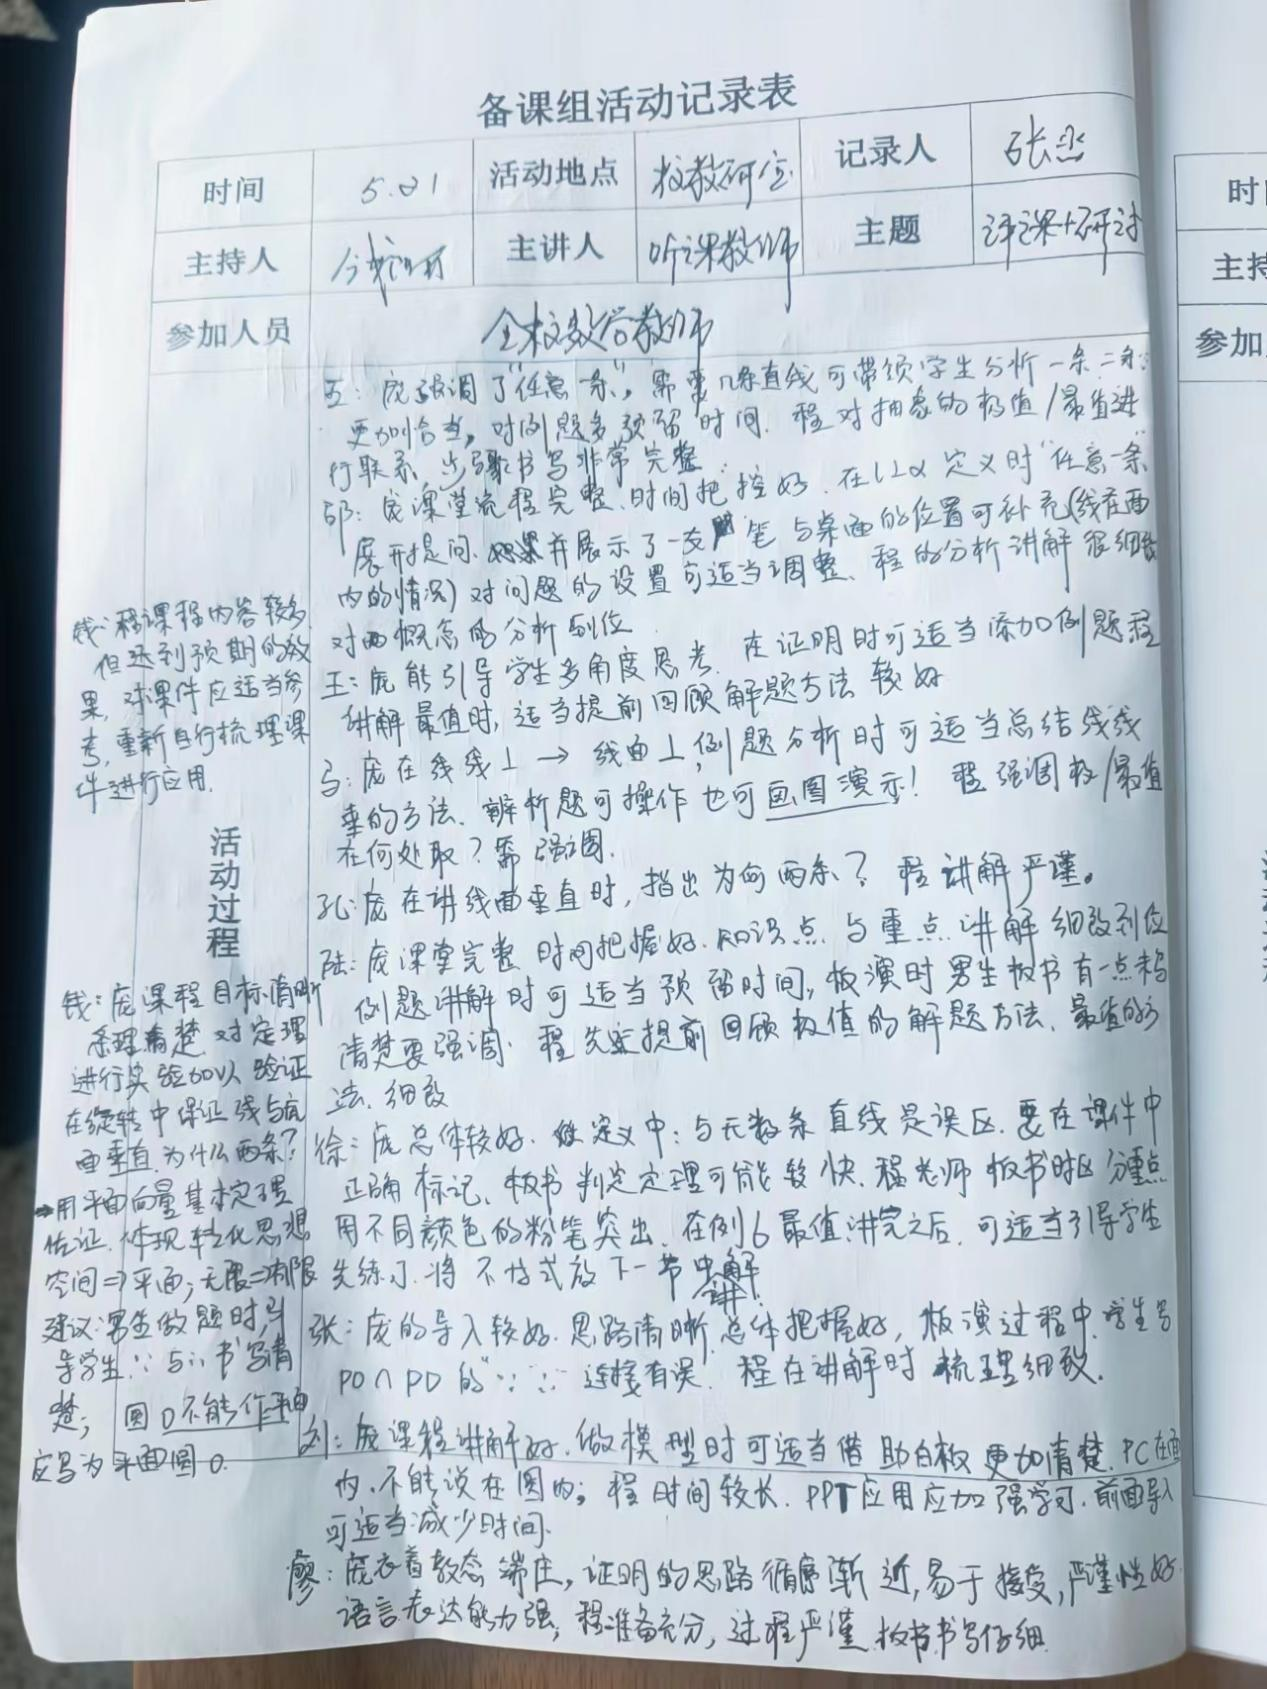 备课组活动记录表
时间 5.21 活动地点 校教研室 记录人 张
主持人 主讲人 听课教师 主题 评课+研讨
参加人员 全校数学教师
活动过程
王：庞强调了“任意一条”，需要几条直线可带领学生分析一条二条
更加恰当，对例题多预留时间．程对抽象的极值/最值进
行联系，步骤书写非常完整．
邵：庞课堂流程完整，时间把控好．在l⊥α定义时“任意一条”
展开提问．并展示了一支笔与桌面的位置可补充（线在面
内的情况）对问题的设置可适当调整、程的分析讲解很细致
对两概念的分析到位
王：庞能引导学生多角度思考．在证明时可适当添加例题 程
讲解最值时，适当提前回顾解题方法较好
马：庞在线线⊥→线面⊥，例题分析时可适当总结线线
垂的方法．辨析题可操作也可画图演示！程强调极/最值
在何处取？需强调．
孔：庞在讲线面垂直时，指出为何两条？程讲解严谨。
陆：庞课堂完整 时间把握好．知识点与重点讲解细致到位
例题讲解时可适当预留时间，板演时男生板书有一点未写
清楚要强调．程先提前回顾极值的解题方法．最值的方
法．细致
徐：庞总体较好．定义中：与无数条直线是误区．要在课件中
正确标记、板书判定定理可能较快．程老师板书时区分重点
用不同颜色的粉笔突出．在例6最值讲完之后．可适当引导学生
先练习．将不等式放下一节中讲解
张：庞的导入较好．思路清晰．总体把握好，板演过程中，学生写
PO∩PD的“∵ ∴”连接有误．程在讲解时梳理细致．
刘：庞课程讲解好．做模型时可适当借助白板更加清楚．PC在面
内．不能说在圆内；程时间较长．PPT应用应加强学习．前面导入
可适当减少时间．
廖：庞衣着教态端庄，证明的思路循序渐近，易于接受，严谨性好．
语言表达能力强；程准备充分，过程严谨．板书书写仔细．
钱：程课程内容较多，
但达到预期的效
果，对课件应适当参
考，重新自行梳理课
件进行应用．
钱：庞课程目标清晰
条理清楚．对定理
进行实验加以验证
在旋转中保证线与底
面垂直．为什么两条？
→用平面向量基本定理
佐证．体现转化思想
空间⇒平面；无限⇒有限
建议：男生做题时，引
导学生∵与∴书写清
楚； 圆O不能作平面
应写为平面圆O．